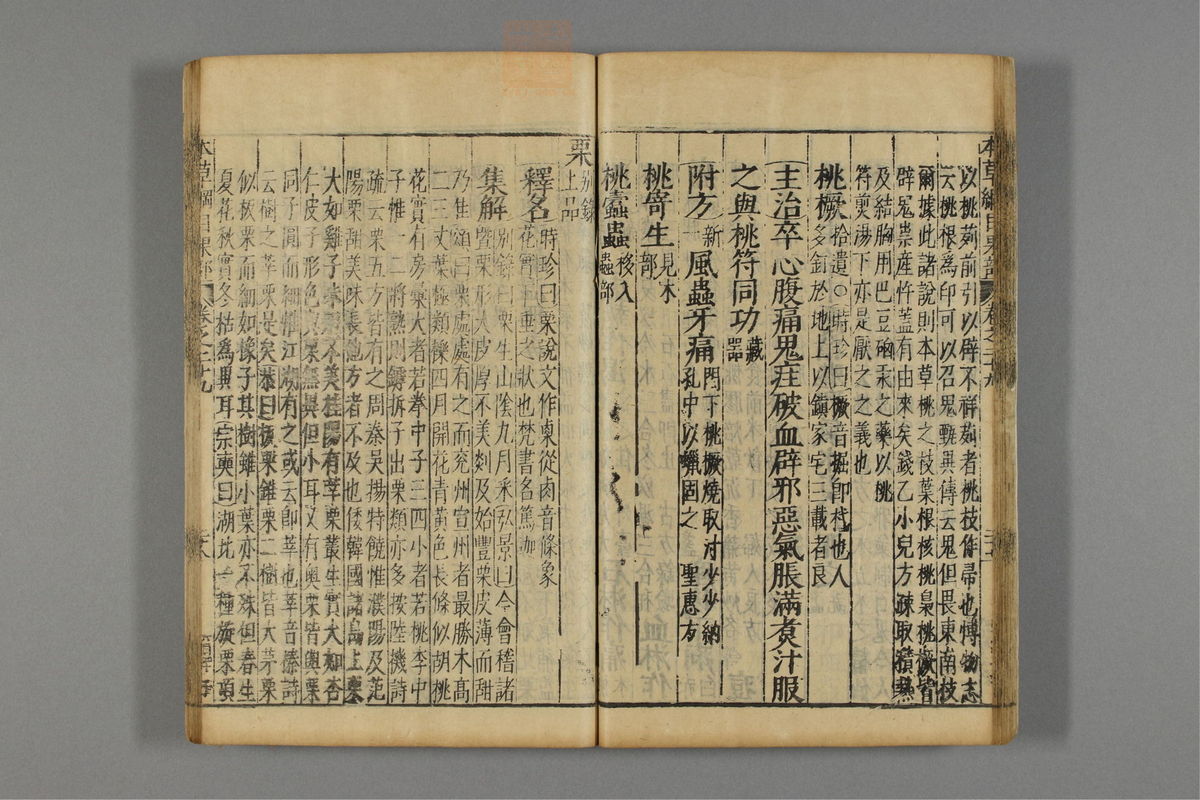 以桃茢前引以辟不祥茢者桃枝作帚也博物志
云桃根為印可以召鬼甄異傳云鬼但畏東南枝
爾據此諸說則本草桃之枝葉根核桃梟桃橛皆
辟鬼祟産忤蓋有由來矣錢乙小兒方疎取積熱
及結胸用巴豆硇汞之藥以桃
符煎湯下亦是厭之之義也
桃橛拾遺〇時珍曰橛音掘即杙也人
多釘於地上以鎮家宅三載者良
主治卒心腹痛鬼疰破血辟邪惡氣脹滿煮汁服
之與桃符同功藏器
附方新一風蟲牙痛門下桃橛燒取汁少少納
孔中以蠟固之 聖惠方
桃寄生見木部
桃蠹蟲移入蟲部
栗別錄上品
釋名時珍曰栗說文作㮚從卤音條象
花實下垂之狀也梵書名篤迦
集解別錄曰栗生山陰九月采弘景曰今會稽諸
暨栗形大皮厚不美剡及始豐栗皮薄而甜
乃佳頌曰栗處處有之而兖州宣州者最勝木高
二三丈葉極類櫟四月開花青黃色長條似胡桃
花實有房彙大者若拳中子三四小者若桃李中
子惟一二將熟則罅拆子出栗類亦多按陸機詩
疏云栗五方皆有之周秦吳揚特饒惟濮陽及范
陽栗甜美味長他方者不及也倭韓國諸島上栗
大如雞子味短不美桂陽有莘栗叢生實大如杏
仁皮子形色與栗無異但小耳又有奥栗皆與栗
同子圓而細惟江湖有之或云即莘也莘音榛詩
云樹之莘栗是矣恭曰板栗錐栗二樹皆大茅栗
似板栗而細如橡子其樹雖小葉亦不殊但春生
夏花秋實冬枯爲異耳宗奭曰湖北一種旋栗頂
本草綱目果部
卷之二十九